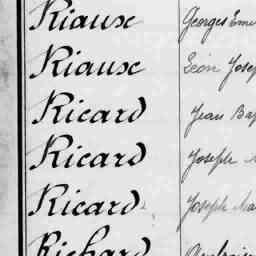 Riause Georges
Riause Léon Josep
Ricard Jean Bap
Ricard Joseph
Ricard Joseph Ma
Richard